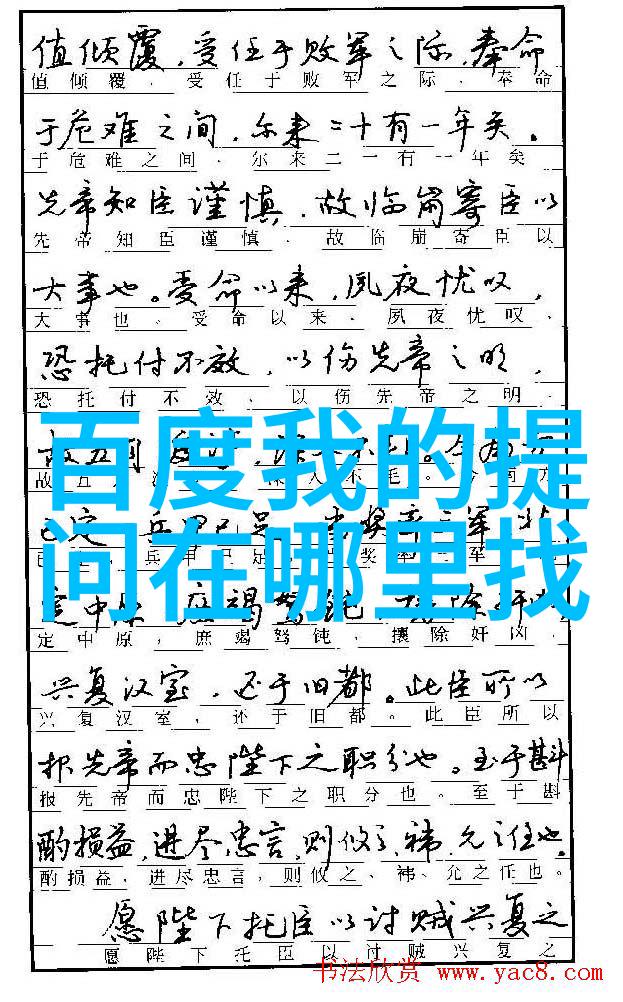 值倾覆，受任于败军之际，奉命
值倾覆，受任于败军之际，奉命
于危难之间，尔来二十有一年矣。
于危难之间，尔来二一有一年矣
先帝知臣谨慎，故临崩寄臣以
先帝知臣谨慎，故临崩寄臣以
大事也。受命以来，夙夜忧叹，
大事也。受命以来，夙夜忧叹，
恐托付不效，以伤先帝之明，
恐托付不效，以伤先帝之明，
百度我的提
问在哪里找
定中原，庶竭驽钝，攘除奸凶，
兴复汉室，还于旧都。此臣所以
兴复汉室，还于旧都。此臣所以
报先帝而忠陛下之职分也。至于斟
报先帝而忠陛下之职分也。至于斟
酌损益，进尽忠言，则攸之、祎、允之任也。
酌损益，进尽忠言，则攸之、祎、允之任也。
愿陛下托臣以讨贼兴复之
愿陛下托臣以讨贼兴复之
书法欣赏 www.yac8.com